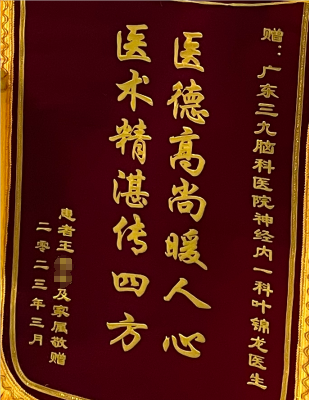 赠：广东三九脑科医院神经内一科叶锦龙医生
医德高尚暖人心
医术精湛传四方
患者王 及家属敬赠
二零二三年三月